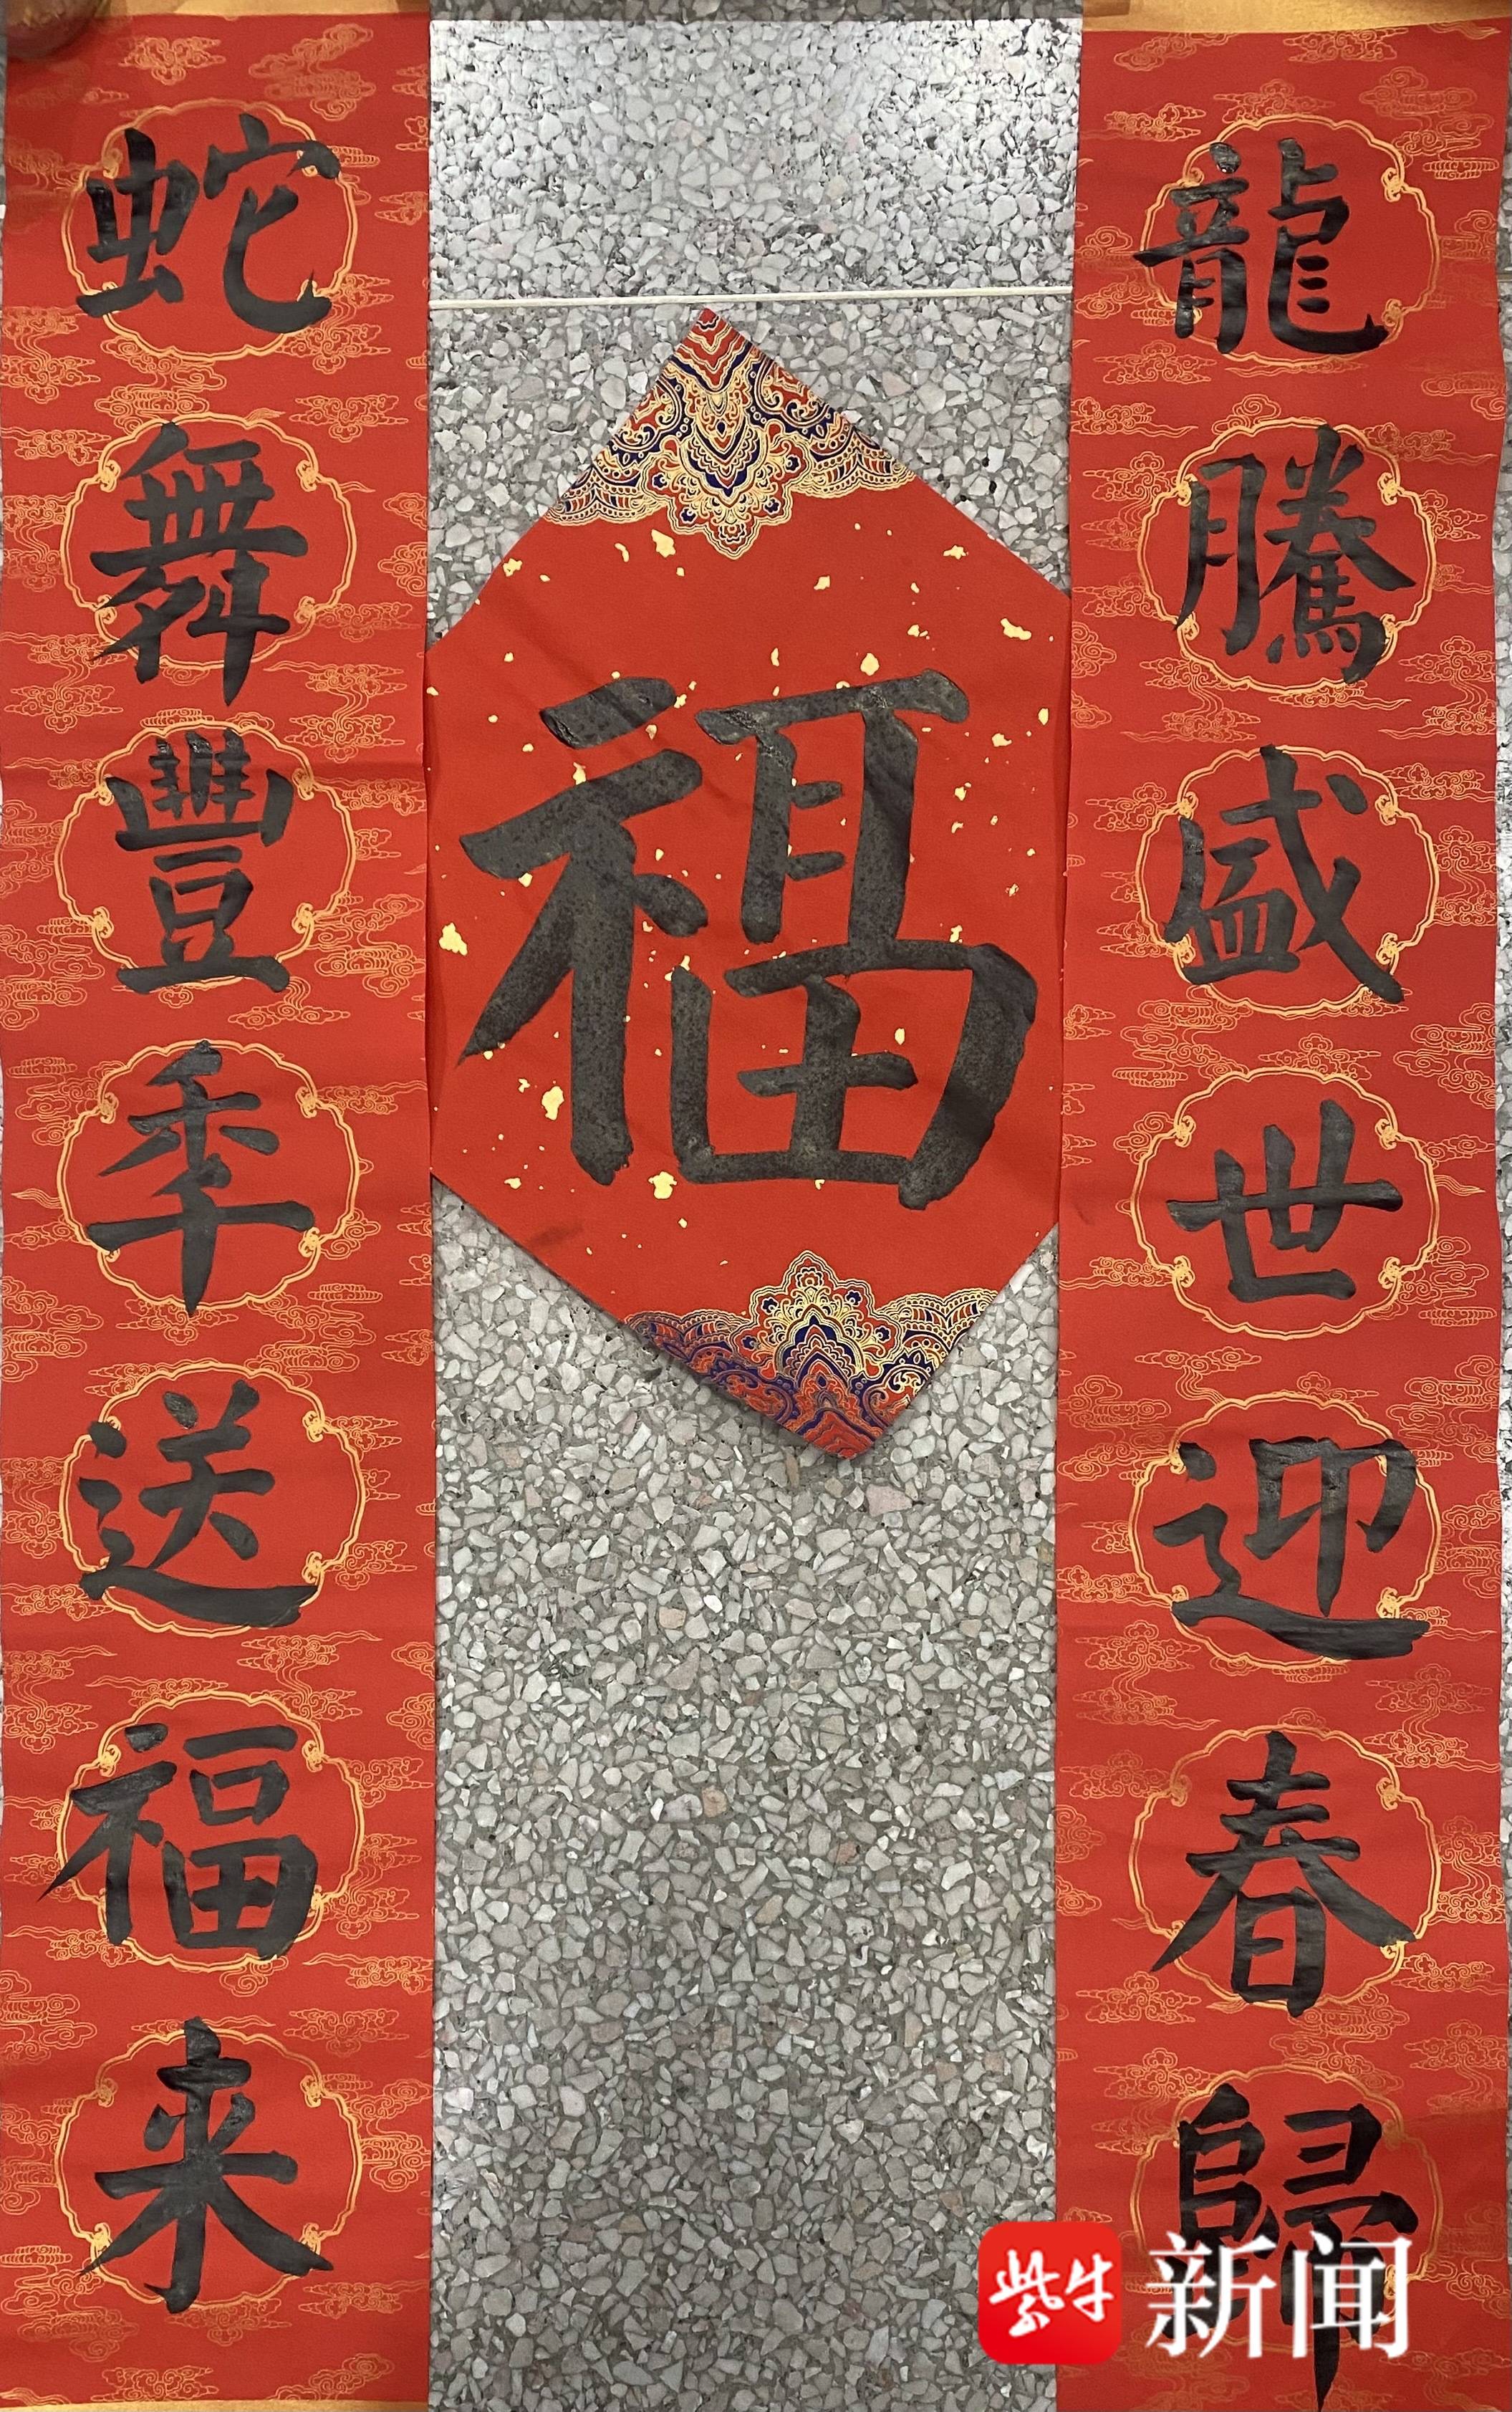 龍騰盛世迎春歸
福
蛇舞豐秊送福来
紫牛新闻